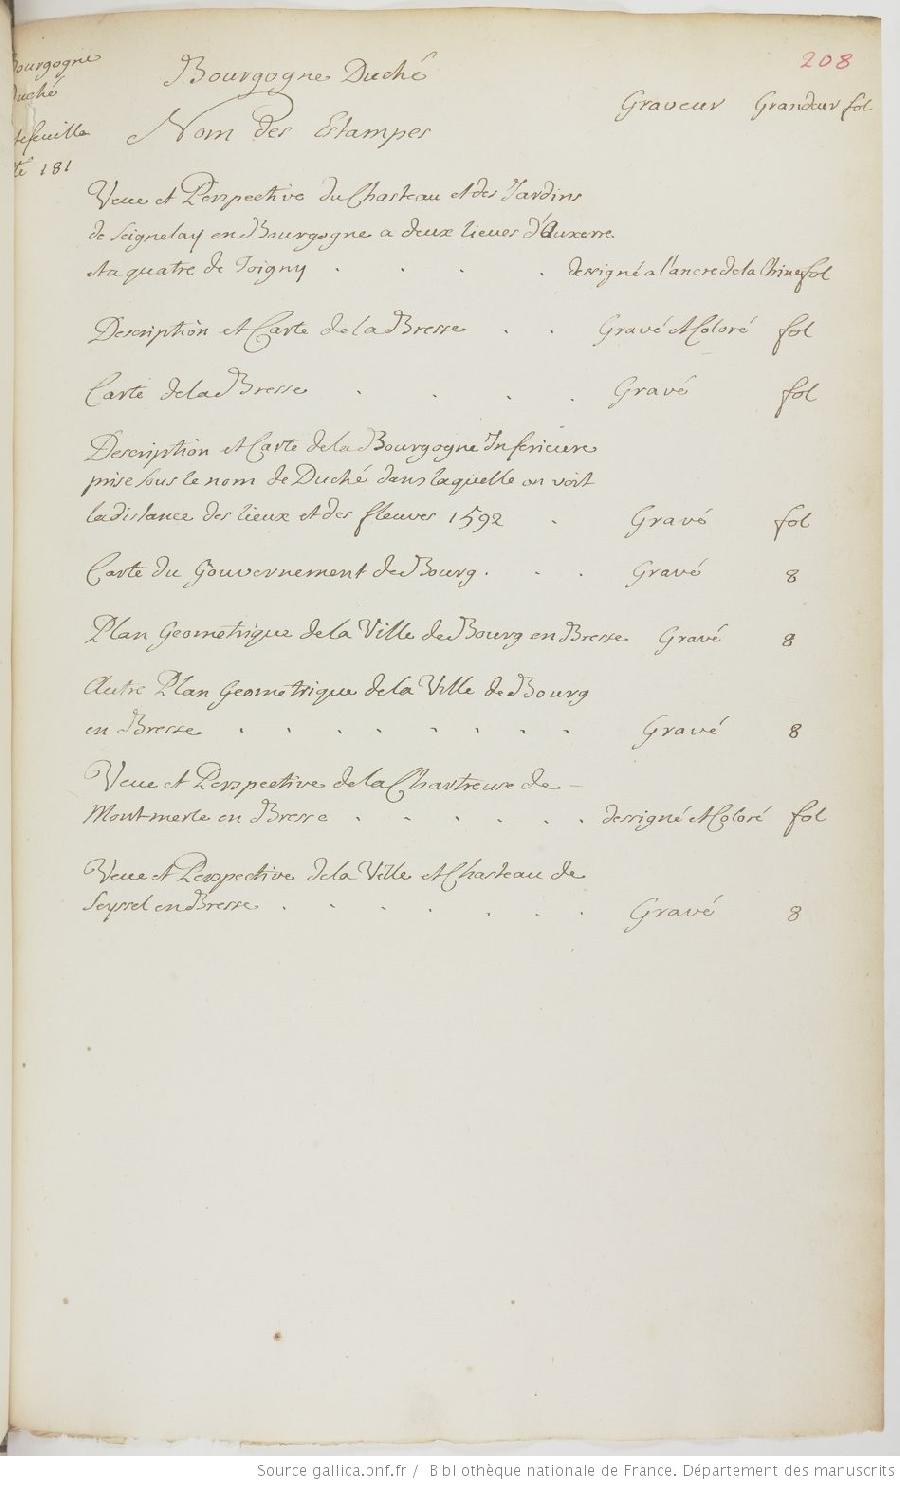 208
Bourgogne
Duché
Bourgogne Duché
Graveur Grandeur fol
Nom des Estampes
181
Veue et Perspective du Chasteau et des Jardins
de Seignelay en Bourgogne a deux lieues d'Auxerre
et a quatre de Joigny . . . . dessigné a l'ancre de la Chine fol
Description et Carte de la Bresse . . Gravé et Coloré fol
Carte de la Bresse . . . . Gravé fol
Description et Carte de la Bourgogne Inferieure
prise sous le nom de Duché dans laquelle on voit
la distance des lieux et des fleuves 1592 . Gravé fol
Carte du Gouvernement de Bourg . . . Gravé 8
Plan Geometrique de la Ville de Bourg en Bresse. Gravé 8
Autre Plan Geometrique de la Ville de Bourg
en Bresse . . . . . . . . Gravé 8
Veue et Perspective de la Chartreuse de
Montmerle en Bresse . . . . . . dessigné et Coloré fol
Veue et Perspective de la Ville et Chasteau de
Seyssel en Bresse . . . . . . . Gravé 8
Source gallica.bnf.fr / Bibliothèque nationale de France. Département des manuscrits